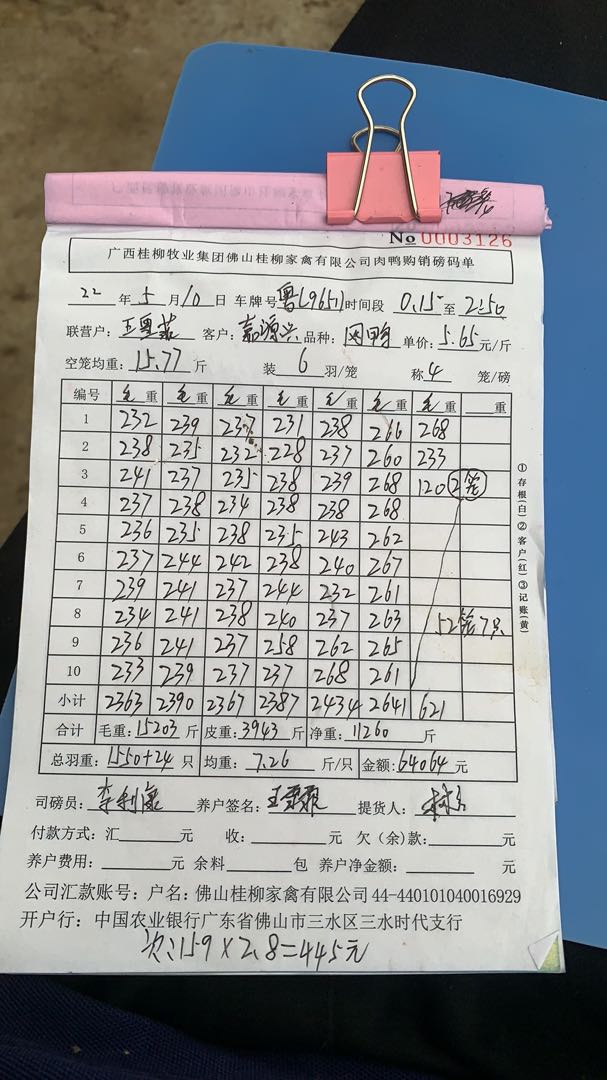 No 0003126
广西桂柳牧业集团佛山桂柳家禽有限公司肉鸭购销磅码单
22 年 5 月 10 日 车牌号 粤L9651 时间段 0:15 至 2:50
联营户: 客户: 嘉源兴 品种: 单价: 5.65 元/斤
空笼均重: 15.77 斤 装 6 羽/笼 称 4 笼/磅
编号 毛重 毛重 毛重 毛重 毛重 毛重 毛重 重
1 232 239 237 231 238 266 268
2 238 235 232 228 237 260 233
3 241 237 235 238 239 268 120 2笼
4 237 238 234 238 238 268
5 236 235 238 235 243 262
6 237 244 242 238 240 267
7 239 241 237 244 232 261
8 234 241 238 240 237 263 52笼7只
9 236 241 237 258 262 265
10 233 239 237 237 268 261
小计 2363 2390 2367 2387 2434 2641 621
合计 毛重: 15203 斤 皮重: 3943 斤 净重: 11260 斤
总羽重: 1550+24 只 均重: 7.26 斤/只 金额: 64064 元
司磅员: 李利康 养户签名: 提货人:
付款方式: 汇 元 收: 元 欠(余)款: 元
养户费用: 元 余料 包 养户净金额: 元
公司汇款账号: 户名: 佛山桂柳家禽有限公司 44-440101040016929
开户行: 中国农业银行广东省佛山市三水区三水时代支行
次:159×2.8=445元
①存根(白)②客户(红)③记账(黄)